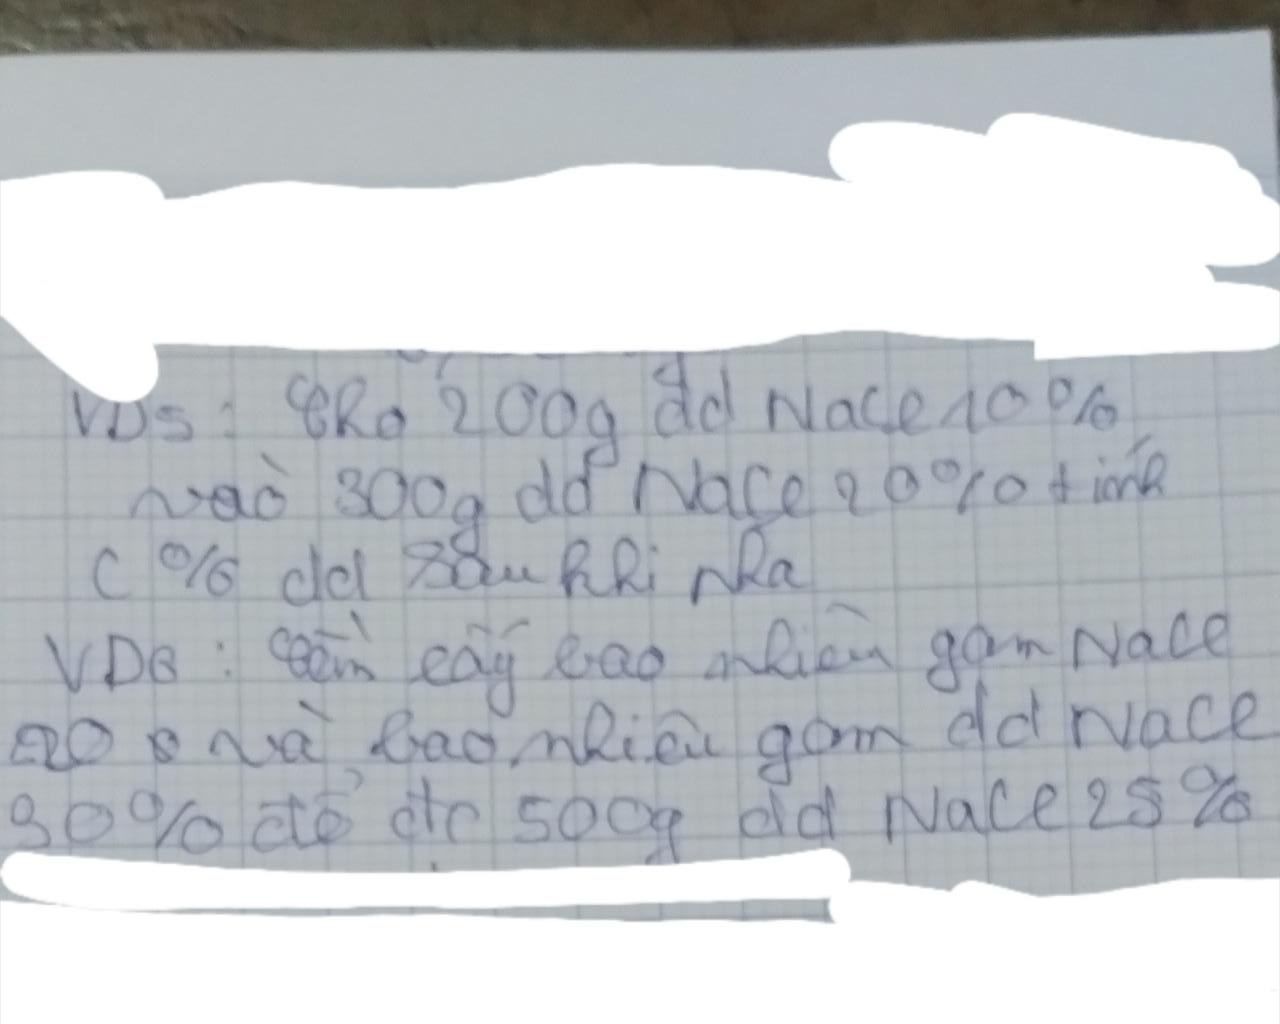 VD5: Cho 200g dd NaCl 10%
vào 300g dd NaCl 20% tính
C% dd sau khi pha
VD6: Cần lấy bao nhiêu gam NaCl
20 và bao nhiêu gam dd NaCl
30% để đc 500g dd NaCl 25%